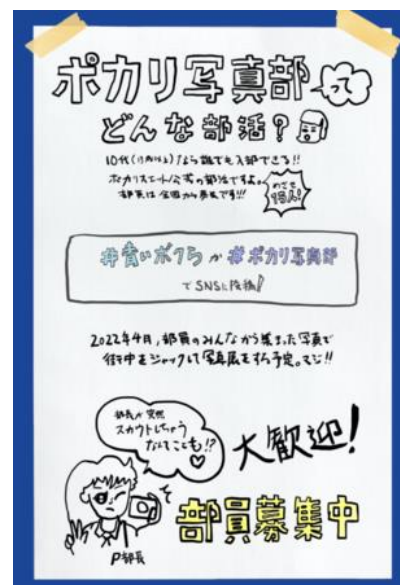 ポカリ写真部って
どんな部活?
10代(13歳以上)なら誰でも入部できる!!
ポカリスエット公式の部活ですよ。
部員は全国から募集です!!!
めざせ
1万人!
#青いボクら か #ポカリ写真部
でSNSに投稿!
2022年4月、部員のみんなから集まった写真で
街中をジャックして写真展をする予定。マジ!!
部長が突然
スカウトしちゃう
なんてことも!?
大歓迎!
部員募集中
P部長